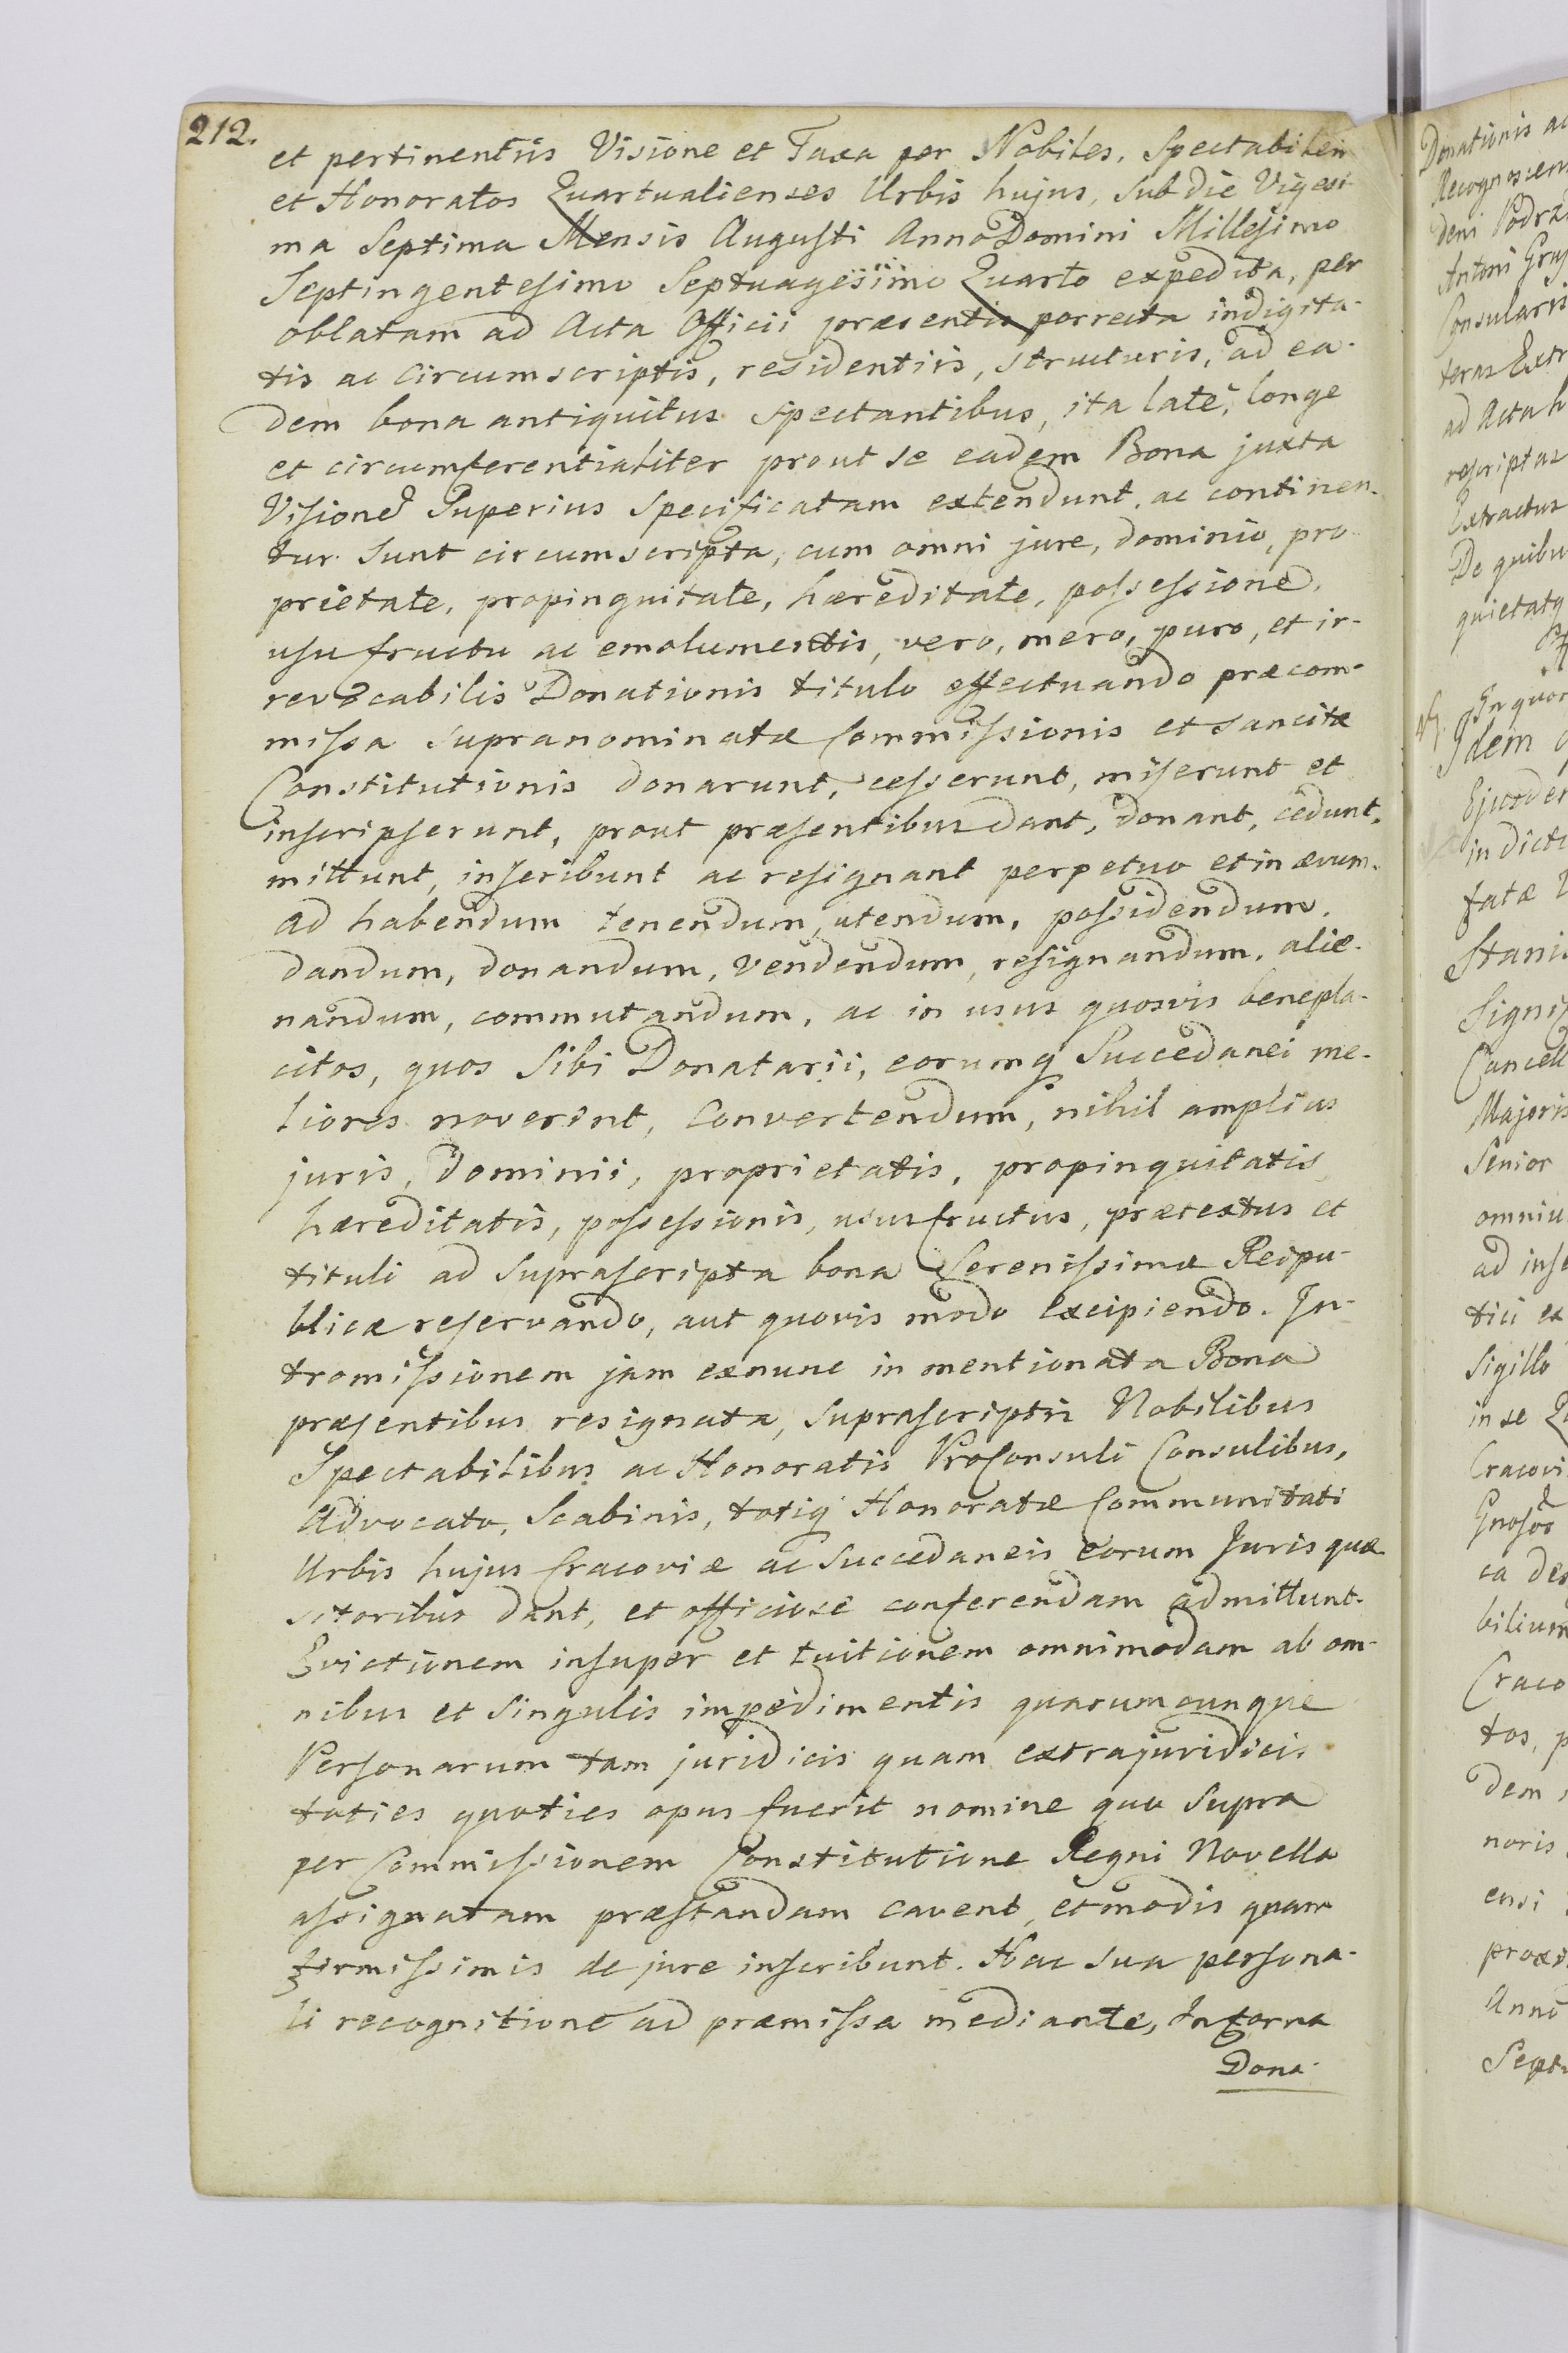 212.
et pertinentiis Visione et Taxa per Nobiles, Spectabiles
et Honoratos Quartualienses Urbis hujus, sub die Vigesi-
ma Septima Mensis Augusti Anno Domini Millesimo
Septingentesimo Septuagesimo Quarto expedita, per
oblatam ad Acta Officii præsentis porrecta indigita-
tis ac circumscriptis, residentiis, structuris, ad ea-
dem bona antiquitus spectantibus, ita late, longe
et circumferentialiter prout se eadem Bona juxta
Visione Superius Specificatam extendunt, ac continen-
tur. Sunt circumscripta, cum omni jure, dominio, pro-
prietate, propinquitate, hæreditate, possessione,
usufructu ac emolumentis, vero, mero, puro, et ir-
revocabilis Donationis titulo effectuando præcom-
missa supranominatæ Commissionis et sancitæ
Constitutionis donarunt, cesserunt, miserunt et
inscripserunt, prout præsentibus dant, donant, cedunt,
mittunt, inscribunt ac resignant perpetuo et in ævum.
ad habendum tenendum, utendum, possidendum,
dandum, donandum, vendendum, resignandum, alie-
nandum, commutandum, ac in usus quosvis benepla-
citos, quos Sibi Donatarii, eorumq Succedanei me-
liores noverint, Convertendum, nihil amplius
juris, dominii, proprietatis, propinquitatis,
hæreditatis, possessionis, ususfructus, prætextus et
tituli ad suprascripta bona Serenissimæ Reipu-
blicæ reservando, aut quovis modo excipiendo. In-
tromissionem jam exnunc in mentionata Bona
præsentibus resignata, suprascriptis Nobilibus
Spectabilibus ac Honoratis ProConsuli Consulibus,
Advocato, Scabinis, totiq Honoratæ Communitati
Urbis hujus Cracoviæ ac succedaneis eorum Juris quæ
sitoribus dant, et officiose conferendam admittunt.
Evictionem insuper et tuitionem omnimodam ab om-
nibus et singulis impedimentis quarumcunque
Personarum tam juridicis quam extrajuridicis
toties quoties opus fuerit nomine quo Supra
per Commissionem Constitutione Regni Novella
assignatam præstandam cavent, et modis quam
firmissimis de jure inscribunt. Hac sua persona-
li recognitione ad præmissa mediante, Interna
Dona-
Donationis ac
Recognoscen
deni Podrz
Antoni Gra
Consularis
teras Extr
ad Acta h
rescriptas
Extractus
De quibu
quietatq
In quor
Idem
Ejusdem
in dict
fatæ
Stani
Signi
Cancell
Majoris
Senior
omniu
ad inse
tici ex
Sigillo
in se
Cracovi
ca de
bilium
Craco
tos, p
dem
noris
ensi
Anno
Septu